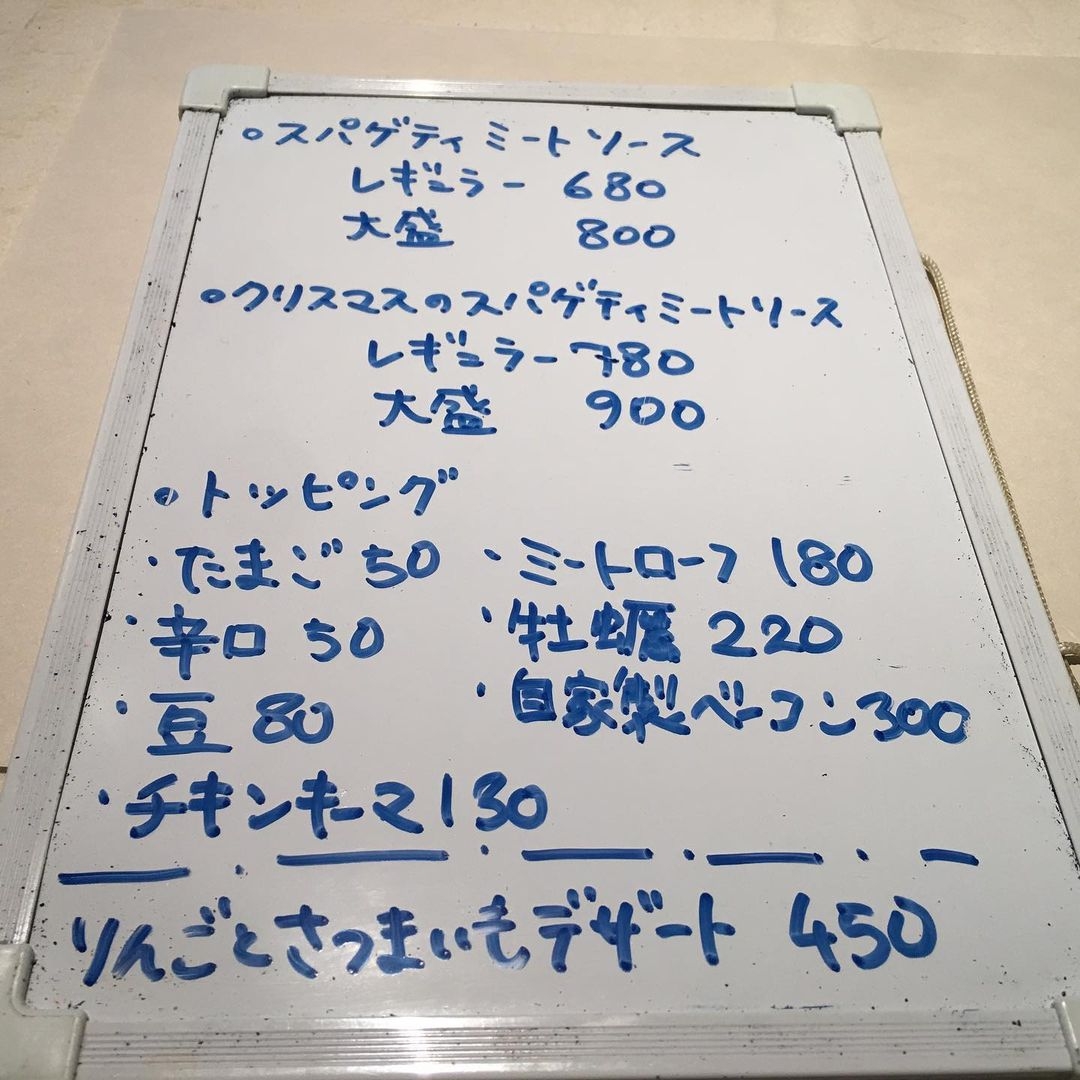 ○スパゲティミートソース
レギュラー 680
大盛 800
○クリスマスのスパゲティミートソース
レギュラー 780
大盛 900
○トッピング
・たまご 50 ・ミートローフ 180
・辛口 50 ・牡蠣 220
・豆 80 ・自家製ベーコン 300
・チキンキーマ 130
りんごとさつまいもデザート 450